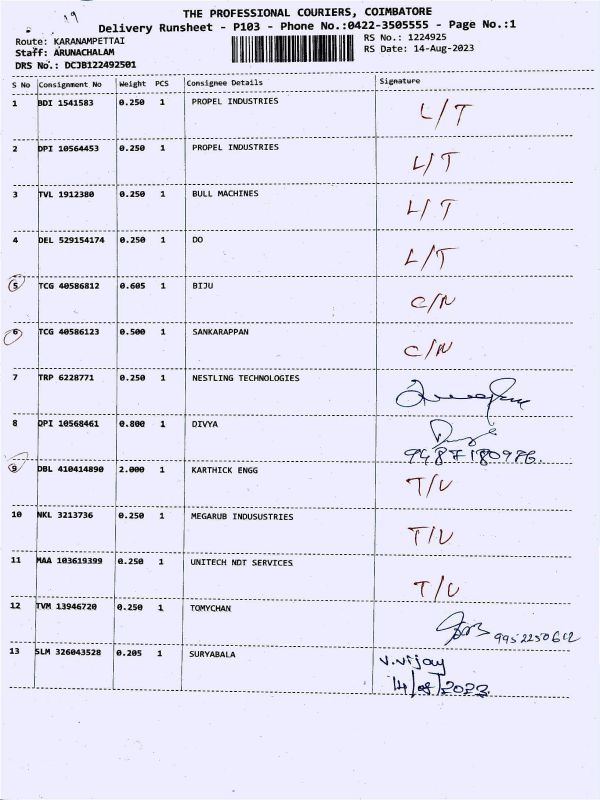 19
THE PROFESSIONAL COURIERS, COIMBATORE
Delivery Runsheet - P103 - Phone No.:0422-3505555 - Page No.:1
Route: KARANAMPETTAI RS No.: 1224925
Staff: ARUNACHALAM RS Date: 14-Aug-2023
DRS No.: DCJB122492501
S No Consignment No Weight PCS Consignee Details Signature
1 BDI 1541583 0.250 1 PROPEL INDUSTRIES L/T
2 DPI 10564453 0.250 1 PROPEL INDUSTRIES L/T
3 TVL 1912380 0.250 1 BULL MACHINES L/T
4 DEL 529154174 0.250 1 DO L/T
5 TCG 40586812 0.605 1 BIJU C/N
6 TCG 40586123 0.500 1 SANKARAPPAN C/N
7 TRP 6228771 0.250 1 NESTLING TECHNOLOGIES
8 DPI 10568461 0.800 1 DIVYA
9487180986.
9 DBL 410414890 2.000 1 KARTHICK ENGG T/U
10 NKL 3213736 0.250 1 MEGARUB INDUSUSTRIES T/U
11 MAA 103619399 0.250 1 UNITECH NDT SERVICES T/U
12 TVM 13946720 0.250 1 TOMYCHAN 9952250612
13 SLM 326043528 0.205 1 SURYABALA V.Vijay
14/08/2023